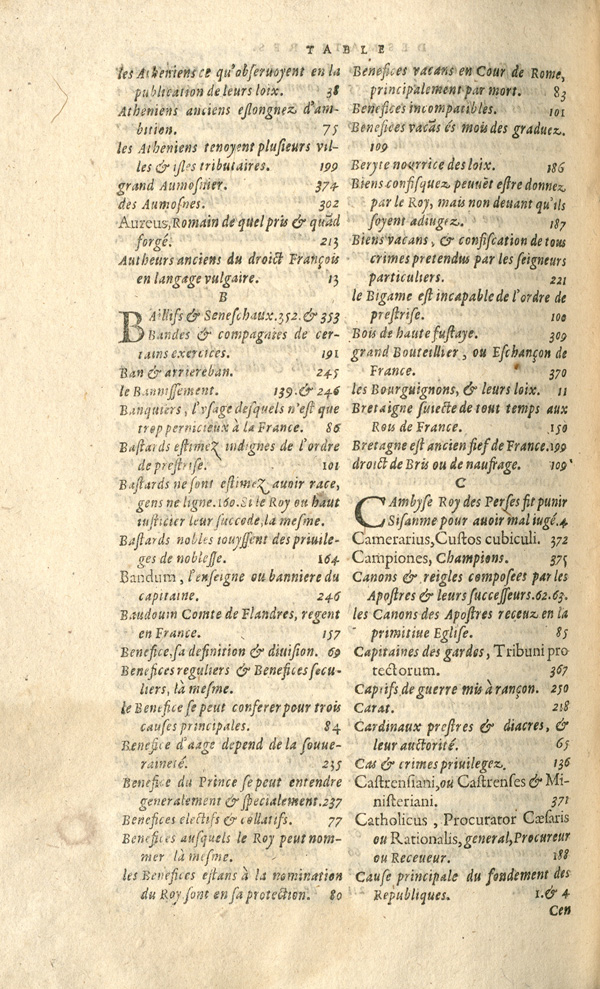 TABLE
les Atheniens ce qu'obseruoyent en la
publication de leurs loix. 38
Atheniens anciens eslongnez d'am-
bition. 75
les Atheniens tenoyent plusieurs vil-
les & isles tributaires. 199
grand Aumosnier. 374
des Aumosnes. 302
Aureus, Romain de quel pris & quãd
forgé. 213
Autheurs anciens du droict François
en langage vulgaire. 13
B
BAillifs & Seneschaux. 352. & 353
Bandes & compagnies de cer-
tains exercices. 191
Ban & arriereban. 245
le Bannissement. 139. & 246
Banquiers, l'vsage desquels n'est que
trop pernicieux à la France. 86
Bastards estimez indignes de l'ordre
de prestrise. 101
Bastards ne sont estimez auoir race,
gens ne ligne. 160. Si le Roy ou haut
iusticier leur succede, la mesme.
Bastards nobles iouyssent des priuile-
ges de noblesse. 164
Bandum, l'enseigne ou banniere du
capitaine. 246
Baudouin Comte de Flandres, regent
en France. 157
Benefice, sa definition & diuision. 69
Benefices reguliers & Benefices secu-
liers, là mesme.
le Benefice se peut conferer pour trois
causes principales. 84
Benefice d'aage depend de la souue-
raineté. 235
Benefice du Prince se peut entendre
generalement & specialement. 237
Benefices electifs & collatifs. 77
Benefices ausquels le Roy peut nom-
mer là mesme.
les Benefices estans à la nomination
du Roy sont en sa protection. 80
Benefices vacans en Cour de Rome,
principalement par mort. 83
Benefices incompatibles. 101
Benefices vacãs és mois des graduez.
109
Beryte nourrice des loix. 186
Biens confisquez peuuẽt estre donnez
par le Roy, mais non deuant qu'ils
soyent adiugez. 187
Biens vacans, & confiscation de tous
crimes pretendus par les seigneurs
particuliers. 221
le Bigame est incapable de l'ordre de
prestrise. 100
Bois de haute fustaye. 309
grand Bouteillier, ou Eschançon de
France. 370
les Bourguignons, & leurs loix. 11
Bretaigne suiecte de tout temps aux
Rois de France. 150
Bretagne est ancien fief de France. 199
droict de Bris ou de naufrage. 109
C
CAmbyse Roy des Perses fit punir
Sisanme pour auoir mal iugé. 4
Camerarius, Custos cubiculi. 372
Campiones, Champions. 375
Canons & reigles composees par les
Apostres & leurs successeurs. 62. 63.
les Canons des Apostres receuz en la
primitiue Eglise. 85
Capitaines des gardes, Tribuni pro
tectorum. 367
Captifs de guerre mis à rançon. 250
Carat. 218
Cardinaux prestres & diacres, &
leur auctorité. 65
Cas & crimes priuilegez. 136
Castrensiani, ou Castrenses & Mi-
nisteriani. 371
Catholicus, Procurator Cæsaris
ou Rationalis, general, Procureur
ou Receueur. 188
Cause principale du fondement des
Republiques. 1. & 4
Cen